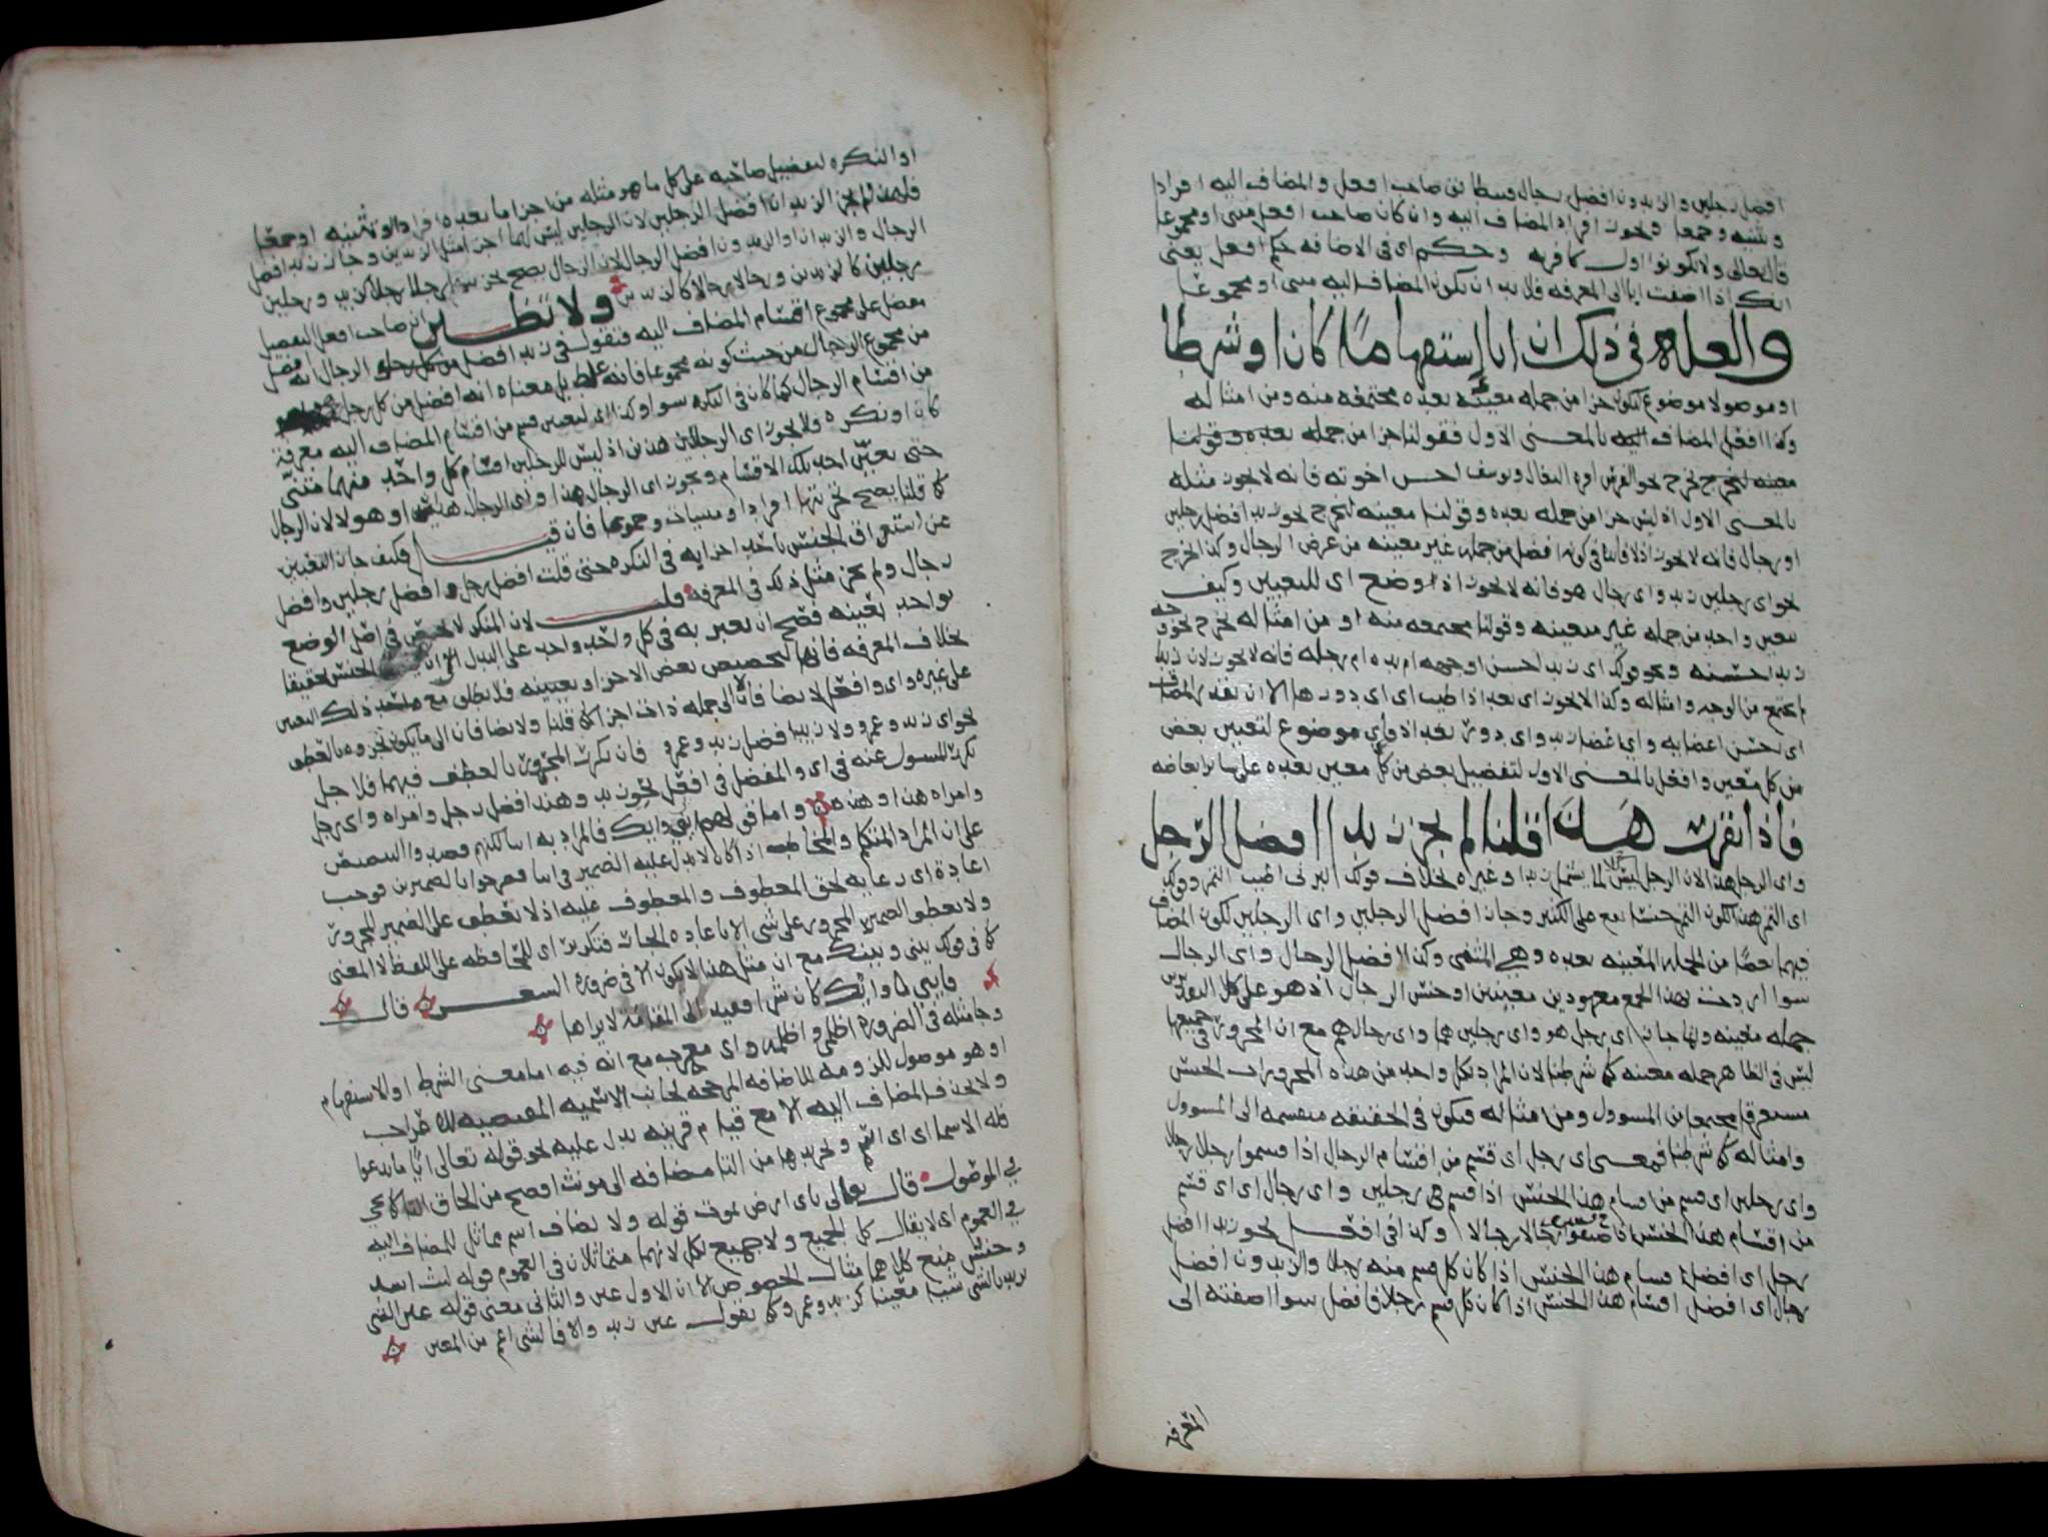 افضل رجلين والزيدون افضل رجال فيطابق صاحب افعل والمضاف اليه افرادا
وتثنيه وجمعا ويجوز افراد المضاف اليه وان كان صاحب افعل مثنى او مجموعا
قال تعالى ولا تكونوا اول كافر به وحكم اى فى الاضافه حكم افعل يعنى
انك اذا اضفت ايا الى المعرفه فلا بد ان يكون المضاف اليه مثنى او مجموعا
والعله فى ذلك ان ايا استفهاما كان او شرطا
او موصولا موضوع ليكون جزا من جمله معينه بعده مجتمعه منه ومن امثاله
وكذا افعل المضاف اليه بالمعنى الاول فقولنا جزا من جمله بعده وقولنا
معينه ليخرج نحو الفرس افره البغال ويوسف احسن اخوته فانه لا يجوز مثله
بالمعنى الاول اذ ليس جزا من جمله بعده وقولنا معينه ليخرج نحو زيد افضل رجلين
او رجال فانه لا يجوز اذ لا فايده فى كونه افضل من جمله غير معينه من عرض الرجال وكذا يخرج
نحو اى رجلين زيد واى رجال هو فانه لا يجوز اذ اى وضع اى للتعيين وكيف
يتعين واحد من جمله غير معينه وقولنا مجتمعه منه ومن امثاله يخرج نحو وجه
زيد احسنه ونحو قولك اى زيد احسن اوجهه ام يده ام رجله فانه لا يجوز لان زيدا
لم يجتمع من الوجه وامثاله وكذا لا يجوز اى بغداد اطيب اى اى دورها الا ان تقدر المضاف
اى احسن اعضايه واى اعضا زيد واى دور بغداد فاى موضوع لتعيين بعض
من كل معين وافعل بالمعنى الاول لتفضيل بعض من كل معين بعده على ساير ابعاضه
فاذا تقرر هذا قلنا لم يجز زيد افضل الرجل
واى الرجل هذا لان الرجل ليس كلا لما يشمل زيدا وغيره بخلاف قولك البرنى اطيب التمر وقولك
اى التمر هذا لكون التمر جنسا يقع على الكثير وجاز افضل الرجلين واى الرجلين لكون المضاف
فيهما بعضا من الجمله المعينه بعده وهى المثنى وكذا افضل الرجال واى الرجال
سوا اردت بهذا الجمع معهودين معينين او جنس الرجال اذ هو على كل التقديرين
جمله معينه وانما جاز اى رجل هو واى رجلين هما واى رجال هم مع ان المجرور فى جميعها
ليس فى الظاهر جمله معينه كما شرطنا لان المراد بكل واحد من هذه المجرورات الجنس
مستغرقا مجتمعا من المسوول ومن امثاله فيكون فى الحقيقه منقسمه الى المسوول
وامثاله كما شرطنا فمعنى اى رجل اى قسم من اقسام الرجال اذا قسموا رجلا رجلا
واى رجلين اى قسم من اقسام هذا الجنس اذا قسم رجلين رجلين واى رجال اى اى قسم
من اقسام هذا الجنس اذا صنفوا رجالا رجالا وكذا فى افعل نحو زيد افضل
رجل اى افضل اقسام هذا الجنس اذا كان كل قسم منه رجلا والزيدون افضل
رجال اى افضل اقسام هذا الجنس اذا كان كل قسم رجالا فافضل سوا اضفته الى
المعرفه
او النكره لتفضيل صاحبه على كل ما هو مثله من اجزا ما بعده افرادا وتثنيه او جمعا
فلهذا لم يجز الزيدان افضل الرجلين لان الرجلين ليس لهما اجزا مثل الزيدين وجاز زيد افضل
الرجال والزيدان او الزيدون افضل الرجال لان الرجال يصح تجزيته رجلا رجلا كزيد ورجلين
رجلين كالزيدين ورجالا رجالا كالزيدين ولا تظن ان صاحب افعل التفضيل
مفضل على مجموع اقسام المضاف اليه فتقول فى زيد افضل الرجال انه افضل
من مجموع الرجال من حيث كونه مجموعا فانه غلط بل معناه انه افضل من كل رجل
من اقسام الرجال كما كان فى النكره سوا وكذا اى لتعيين قسم من اقسام المضاف اليه معرفة
كان او نكره فلا يجوز اى الرجلين هذين اذ ليس للرجلين اقسام كل واحد منهما مثنى
حتى يعين احد تلك الاقسام ويجوز اى الرجال هذا واى الرجال هذان او هولا لان الرجال
كما قلنا يصح تجزيتها افرادا ومثنيات وجموعا فان قيل فكيف جاز التعبير
عن استغراق الجنس باحد اجزايه فى النكره حتى قلت افضل رجل وافضل رجلين وافضل
رجال ولم يجز مثل ذلك فى المعرفه قلت لان المنكر لا يختص فى اصل الوضع
بواحد بعينه فصح ان يعبر به فى كل واحد واحد على البدل الجنس تحقيقا
بخلاف المعرفه فانها لتخصيص بعض الاجزا وتعيينه فلا يطلق مع ذلك التعيين
على غيره واى وافعل لا يضافان الى جمله ذات اجزا كما قلنا ولا يضافان الى ما يكون تجزوه بالعطف
نحو اى زيد وعمرو ولا زيد افضل زيد وعمرو فان تكرر المجرور بالعطف فيهما فلاجل
تكرر المسول عنه فى اى والمفضل فى افعل نحو زيد وهند افضل رجل وامراه واى رجل
وامراه هذا وهذه واما قولهم ايى وايك فالمراد به اينا لكنهم قصدوا التنصيص
على ان المراد المتكلم والمخاطب اذ كان لا يدل عليه الضمير فى اينا فصرحوا بالضميرين فوجب
اعادة اى رعايه لحق المعطوف والمعطوف عليه اذ لا يعطف على الضمير المجرور
ولا يعطف الضمير المجرور على شى الا باعاده الجار فتكرير اى للمحافظه على اللفظ لا المعنى
كما فى قولك بينى وبينك مع ان مثل هذا لا يكون الا فى ضرورة الشعر قال
فايى ما وايك كان شرا فقيد الى المقامة لا يراها
وجا مثله فى الضرورة اظلمى واظلمه واى معرب مع انه فيه اما معنى الشرط او الاستفهام
او هو موصول للزومه للاضافه المرجحه لجانب الاسميه المقتضيه للاعراب
ولا يحذف المضاف اليه الا مع قيام قرينه تدل عليه نحو قوله تعالى ايا ما تدعوا
فله الاسما اى اى اسم وتجريدها من التا مضافه الى مونث افصح من الحاق التا كما يجى
فى الموصول قال تعالى باى ارض تموت قوله ولا يضاف اسم مماثل للمضاف اليه
فى العموم اى لا يقال كل الجميع ولا جميع الكل لانهما متماثلان فى العموم قوله ليث اسد
وحبس منع كلاهما مثال الخصوص الا ان الاول عين والثانى معنى قوله عين الشى
يريد بالشى شيا معينا كزيد وعمرو كما تقول عين زيد والا فالشى اعم من العين